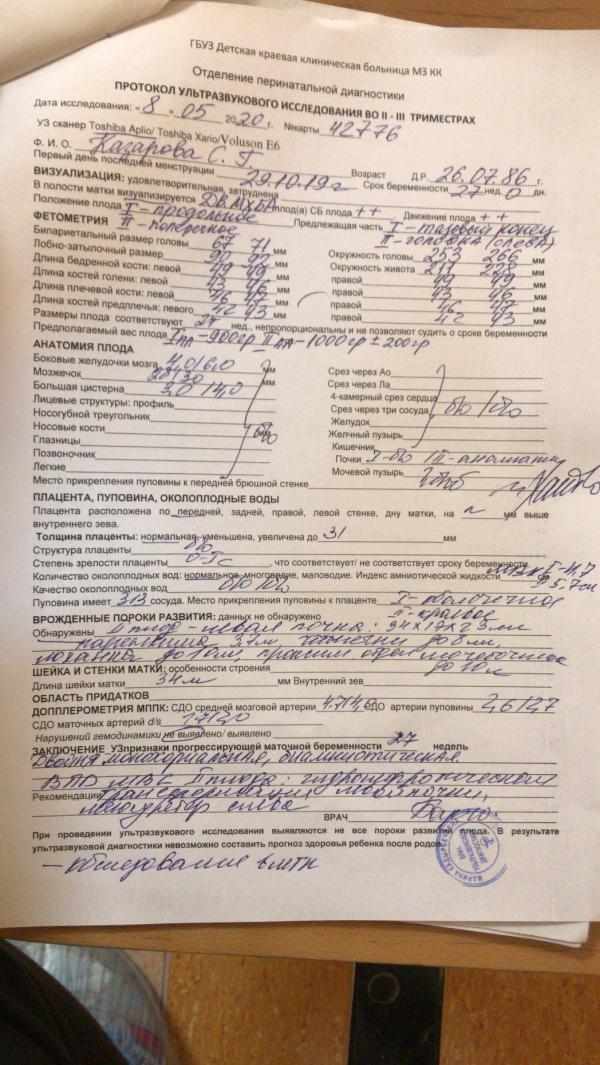 ГБУЗ Детская краевая клиническая больница МЗ КК
Отделение перинатальной диагностики
ПРОТОКОЛ УЛЬТРАЗВУКОВОГО ИССЛЕДОВАНИЯ ВО II - III ТРИМЕСТРАХ
Дата исследования: « 8 » 05 2020 г. №карты 42776
УЗ сканер Toshiba Aplio/ Toshiba Xario/Voluson E6
Ф. И. О. Казарова С. Г. Возраст Д.Р. 26.07.86 г.
Первый день последней менструации 29.10.19г Срок беременности 27 нед. 0 дн.
ВИЗУАЛИЗАЦИЯ: удовлетворительная, затруднена
В полости матки визуализируется ДВ МХБА плод(а) СБ плода ++ Движение плода ++
Положение плода I - продольное Предлежащая часть I - тазовый конец
II - поперечное II - головка (слева)
ФЕТОМЕТРИЯ
Бипариетальный размер головы 67 71 мм Окружность головы 253 266 мм
Лобно-затылочный размер 90 92 мм Окружность живота 211 228 мм
Длина бедренной кости: левой 49 49 мм правой 49 49 мм
Длина костей голени: левой 43 46 мм правой 43 46 мм
Длина плечевой кости: левой 46 47 мм правой 46 47 мм
Длина костей предплечья: левого 42 43 мм правой 42 43 мм
Размеры плода соответствуют 27 нед., непропорциональны и не позволяют судить о сроке беременности
Предполагаемый вес плода I пл - 900гр II пл - 1000гр ± 200гр
АНАТОМИЯ ПЛОДА
Боковые желудочки мозга 4,0/6,0 мм Срез через Ао
Мозжечок 28/30 мм Срез через Ла
Большая цистерна 3,0/4,0 4-камерный срез сердца
Лицевые структуры: профиль Срез через три сосуда б/о /б/о
Носогубной треугольник Желудок
Носовые кости Желчный пузырь
Глазницы Кишечник
Позвоночник Почки I - б/о II - аномалии
Легкие Мочевой пузырь
Место прикрепления пуповины к передней брюшной стенке
ПЛАЦЕНТА, ПУПОВИНА, ОКОЛОПЛОДНЫЕ ВОДЫ
Плацента расположена по передней, задней, правой, левой стенке, дну матки, на мм выше
внутреннего зева.
Толщина плаценты: нормальная, уменьшена, увеличена до 31 мм
Структура плаценты б/о
Степень зрелости плаценты 0-Iс, что соответствует/ не соответствует сроку беременности.
Количество околоплодных вод: нормальное, многоводие, маловодие. Индекс амниотической жидкости I - 4,7 см
II 5,7 см
Качество околоплодных вод б/о /б/о
Пуповина имеет 3/3 сосуда. Место прикрепления пуповины к плаценте I - оболочечное
II - краевое
ВРОЖДЕННЫЕ ПОРОКИ РАЗВИТИЯ: данных не обнаружено
Обнаружены II плод - левая почка: 34x17x23мм
паренхима чашечки до 8мм,
лоханка до 10мм, мочеточника
до 10мм
ШЕЙКА И СТЕНКИ МАТКИ: особенности строения
Длина шейки матки 34м мм Внутренний зев
ОБЛАСТЬ ПРИДАТКОВ
ДОППЛЕРОМЕТРИЯ МППК: СДО средней мозговой артерии 4.7/4,0 СДО артерии пуповины 2,6/2,7
СДО маточных артерий d/s 1,7/2,0
Нарушений гемодинамики не выявлено/ выявлено
ЗАКЛЮЧЕНИЕ УЗпризнаки прогрессирующей маточной беременности 27 недель
Двойня монохориальная, биамниотическая
ВПР МВС II плода: гидронефротическая
Рекомендации трансформация левой почки,
мегауретер слева
ВРАЧ
При проведении ультразвукового исследования выявляются не все пороки развития плода. В результате
ультразвуковой диагностики невозможно составить прогноз здоровья ребенка после родов.
- обследование в МГК